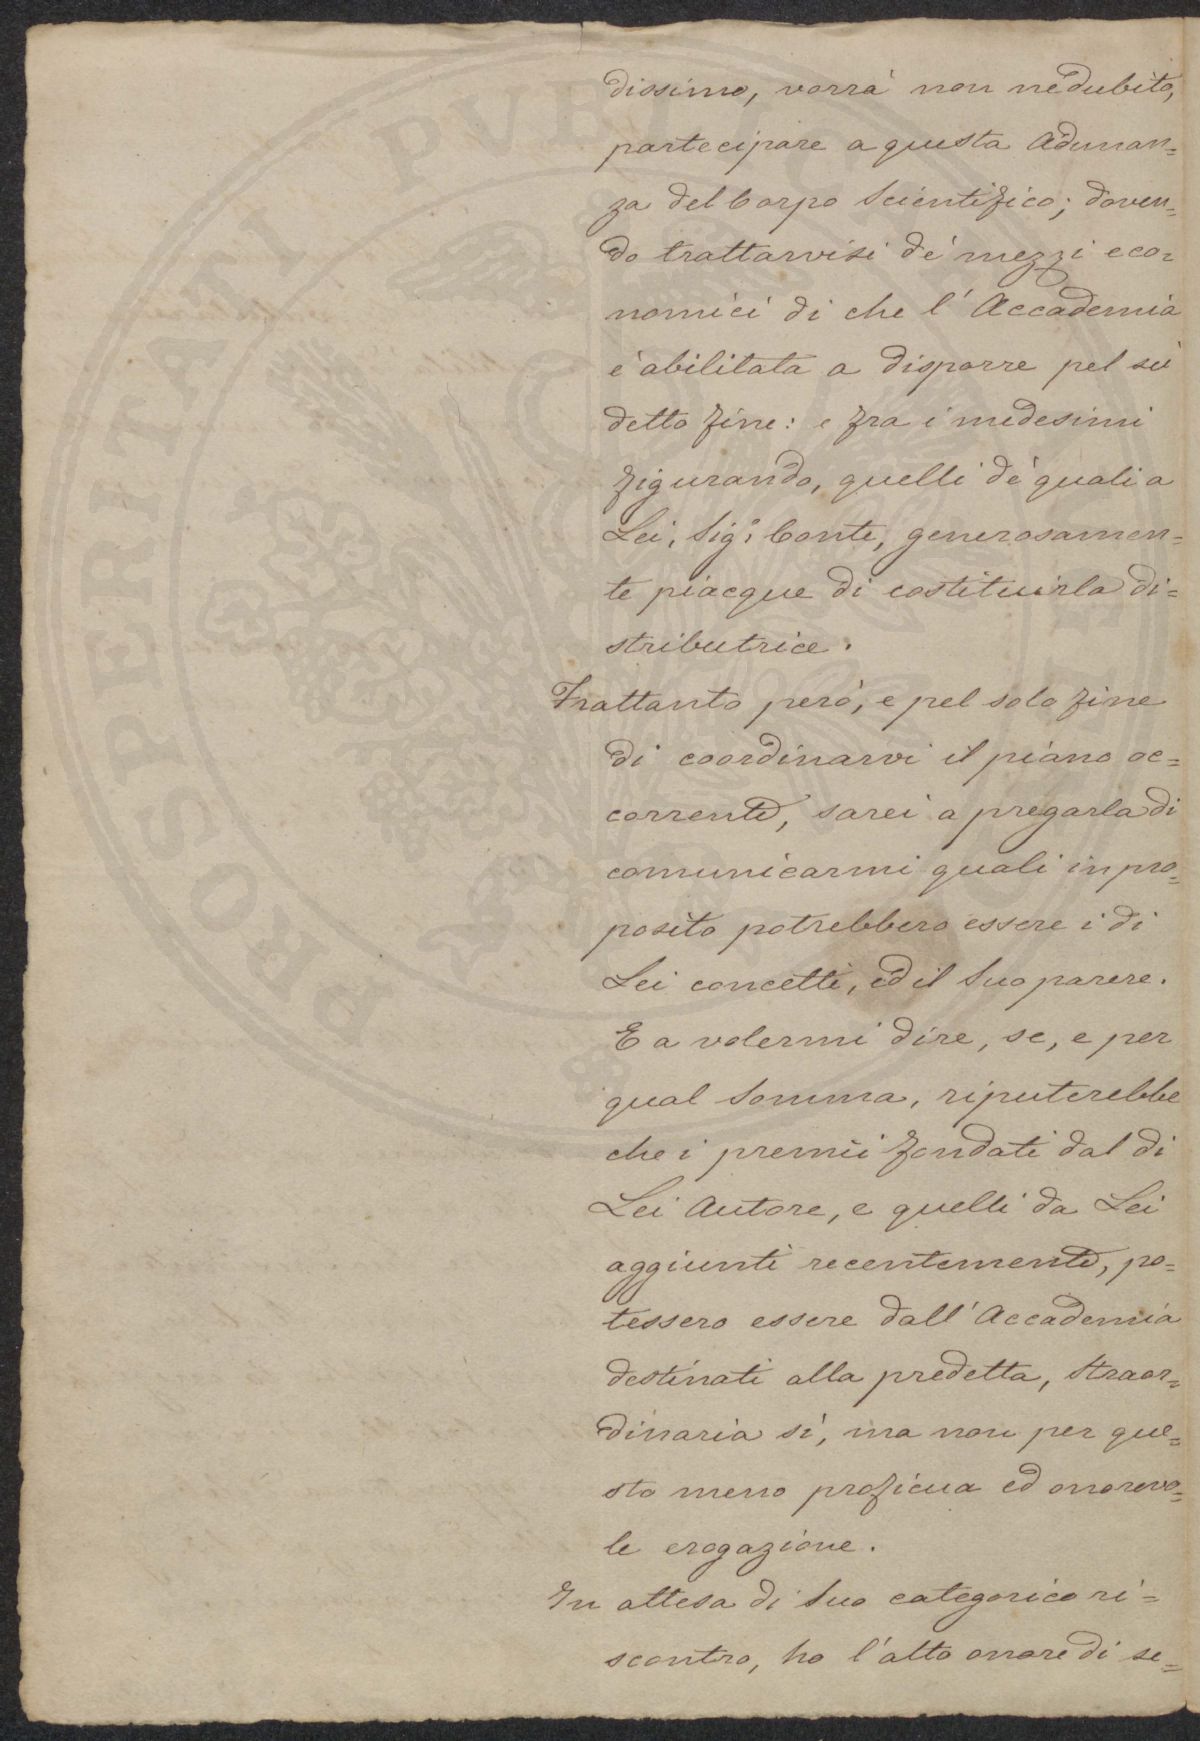 dissimo, vorrà non ne dubito,
partecipare a questa Adunan=
za del Corpo Scientifico; doven=
do trattarvisi de' mezzi eco=
nomici di che l'Accademia
è abilitata a disporre pel su
detto fine: e fra i medesimi
figurando, quelli de' quali a
Lei, Sig.r Conte, generosamen=
te piacque di costituirla di=
stributrice.
Frattanto però, e pel solo fine
di coordinarvi il piano oc=
corrente, sarei a pregarla di
comunicarmi quali in pro=
posito potrebbero essere i di
Lei concetti, ed il Suo parere.
E a volermi dire, se, e per
qual Somma, riputerebbe
che i premii fondati dal di
Lei Autore, e quelli da Lei
aggiunti recentemente, po=
tessero essere dall'Accademia
destinati alla predetta, Straor=
dinaria sì, ma non per que=
sto meno proficua ed onorevo=
le erogazione.
In attesa di Suo categorico ri=
scontro, ho l'alto onore di se=
PROSPERITATI PVBLIC